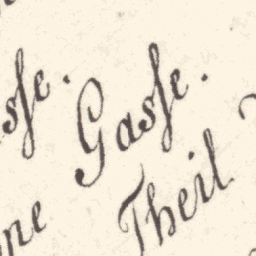 sse. Gasse.
ne Theil